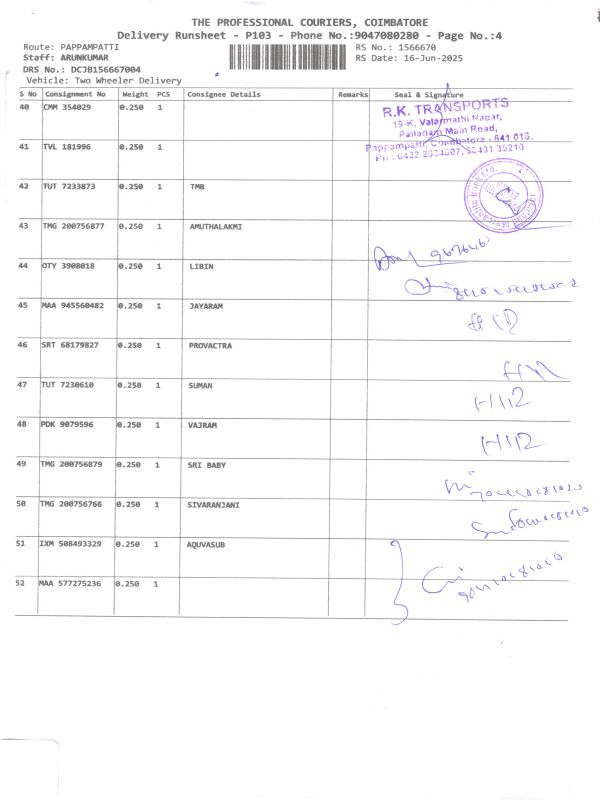 THE PROFESSIONAL COURIERS, COIMBATORE
Delivery Runsheet - P103 - Phone No.:9047080280 - Page No.:4
Route: PAPPAMPATTI RS No.: 1566670
Staff: ARUNKUMAR RS Date: 16-Jun-2025
DRS No.: DCJB156667004
Vehicle: Two Wheeler Delivery
S No Consignment No Weight PCS Consignee Details Remarks Seal & Signature
40 CMM 354029 0.250 1
R.K. TRANSPORTS
19-K, Valarmathi Nagar,
Palladam Main Road,
Pappampatti, Coimbatore - 641 016.
41 TVL 181996 0.250 1
42 TUT 7233873 0.250 1 TMB
43 TMG 200756877 0.250 1 AMUTHALAKMI
44 OTY 3908018 0.250 1 LIBIN
45 MAA 945560482 0.250 1 JAYARAM
46 SRT 68179827 0.250 1 PROVACTRA
47 TUT 7230610 0.250 1 SUMAN
48 PDK 9079596 0.250 1 VAJRAM
49 TMG 200756879 0.250 1 SRI BABY
50 TMG 200756766 0.250 1 SIVARANJANI
51 IXM 508493329 0.250 1 AQUVASUB
52 MAA 577275236 0.250 1